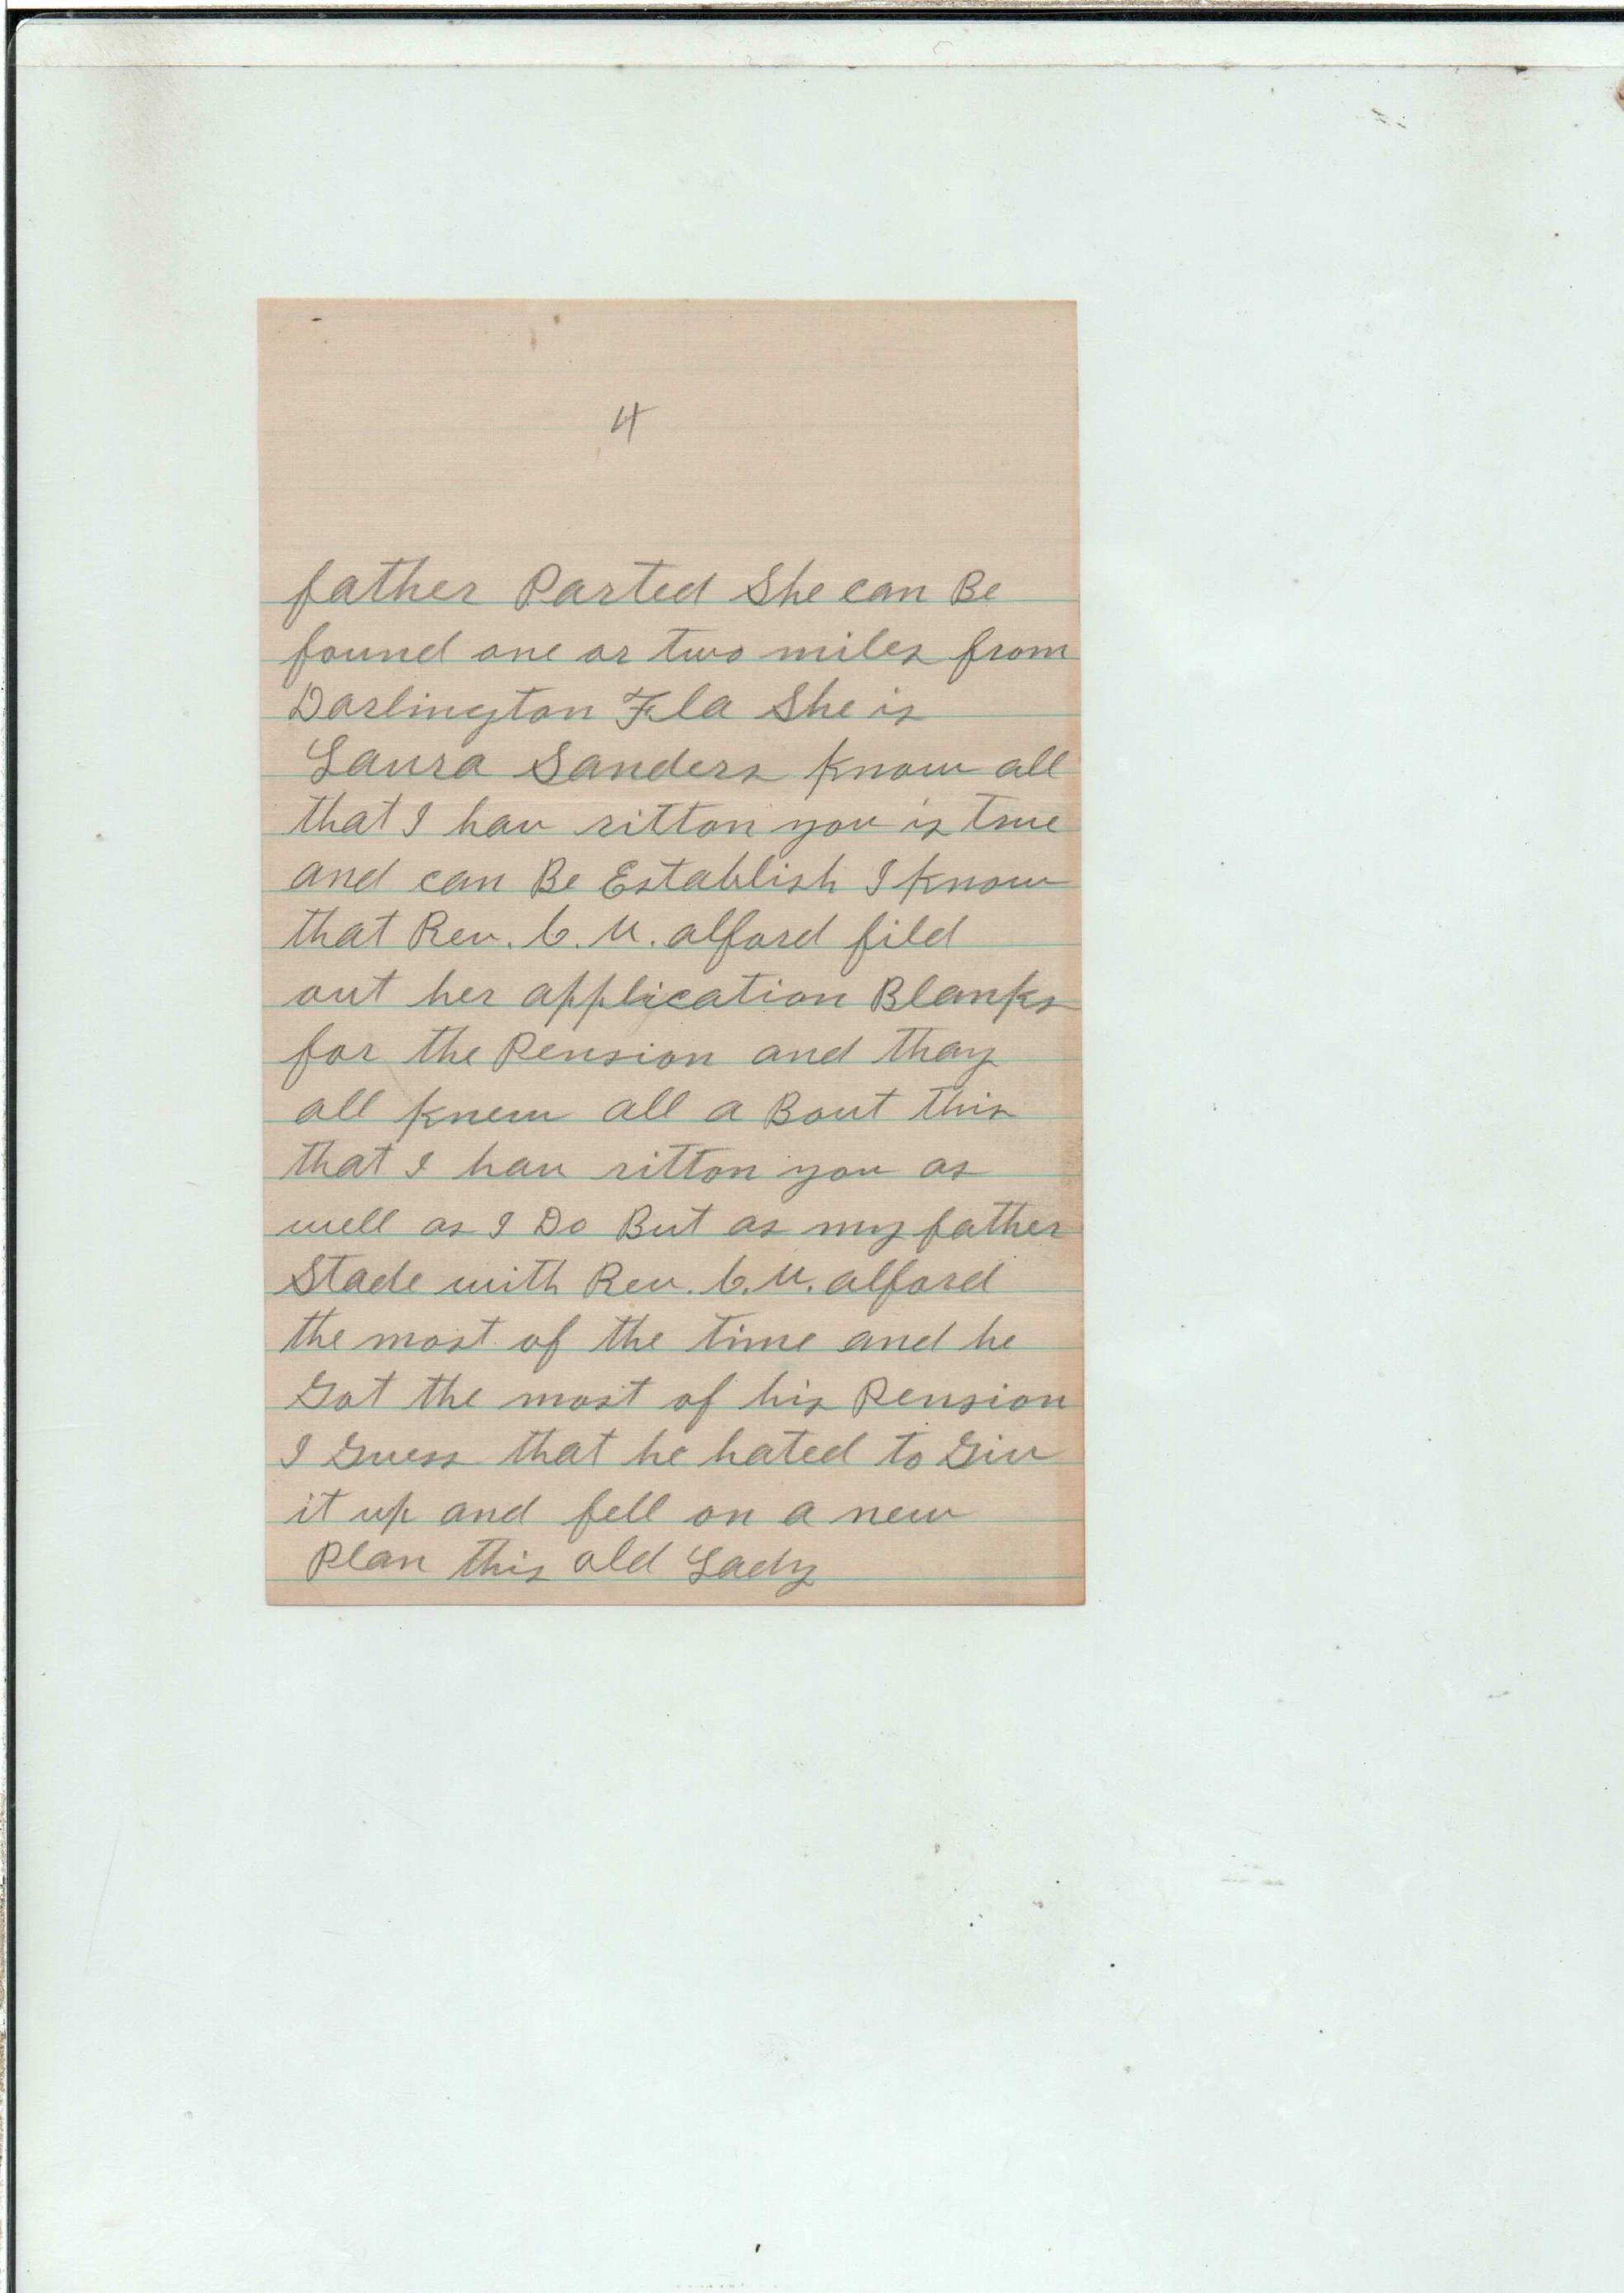 4
father Parted She can Be
found one or two miles from
Darlington Fla She is
Laura Sanders Know all
that I hav ritton you is true
and can Be Establish I know
that Rev. C. U. alford fild
out her application Blanks
for the Pension and thay
all knew all a Bout this
that I hav ritton you as
well as I Do But as my father
Stade with Rev. C. U. alford
the most of the time and he
Got the most of his Pension
I Guess that he hated to Giv
it up and fell on a new
Plan this old Lady